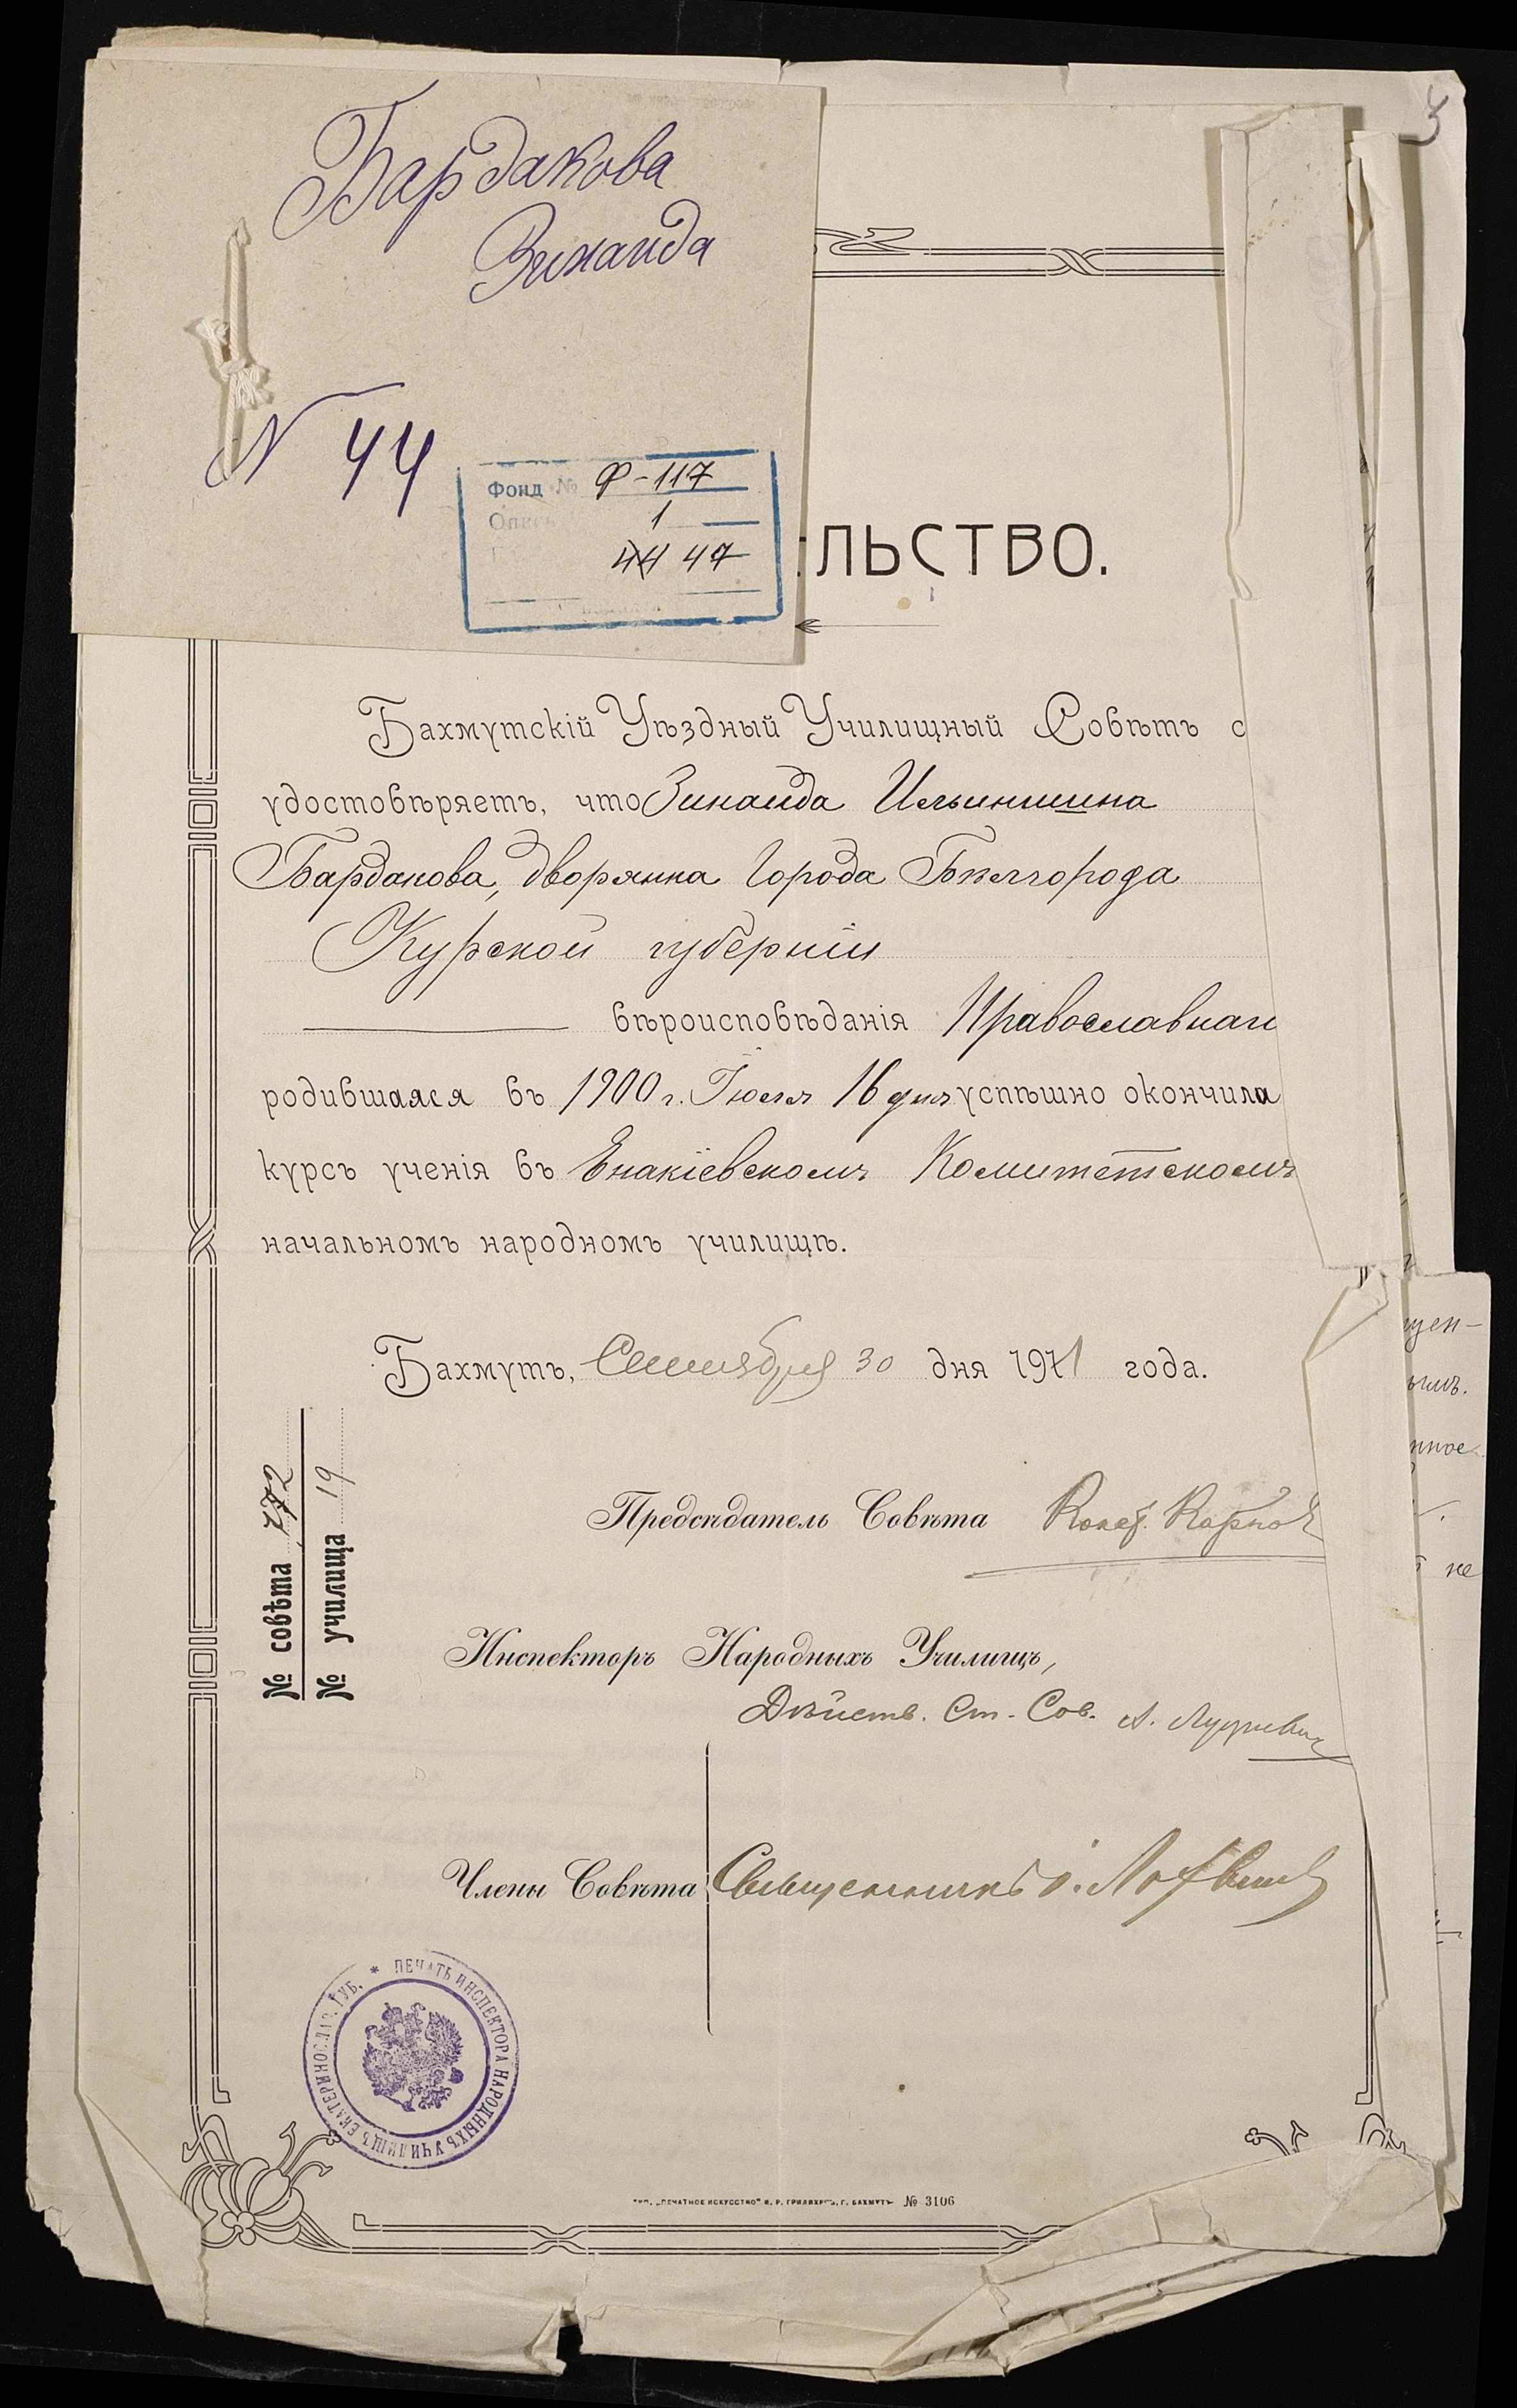 3
Бардакова
Зинаида
N 44
Фонд № Ф-117
1
44 47
ЛЬСТВО.
Бахмутскій Уѣздный Училищный Совѣтъ с
удостовѣряетъ, что Зинаида Ильинишна
Бардакова, дворянка города Бѣлгорода
Курской губерніи
вѣроисповѣданія Православнаг
родившаяся въ 1900 г. Іюля 16 дня успѣшно окончила
курсъ ученія въ Енакіевскомъ Комитетскомъ
начальномъ народномъ училищѣ.
Бахмутъ, Сентября 30 дня 1911 года.
№ совѣта 272
№ училища 19
Предсѣдатель Совѣта
Инспекторъ Народныхъ Училищъ,
Дѣйств. Ст. Сов. А.
Члены Совѣта Священникъ
* ПЕЧАТЬ ИНСПЕКТОРА НАРОДНЫХЪ УЧИЛИЩЪ ЕКАТЕРИНОСЛАВ. ГУБ.
ТИП. „ПЕЧАТНОЕ ИСКУССТВО" И. Р. ГРИЛИХЕСЪ, Г. БАХМУТЪ № 3106
щен-
ымъ.
нное
не